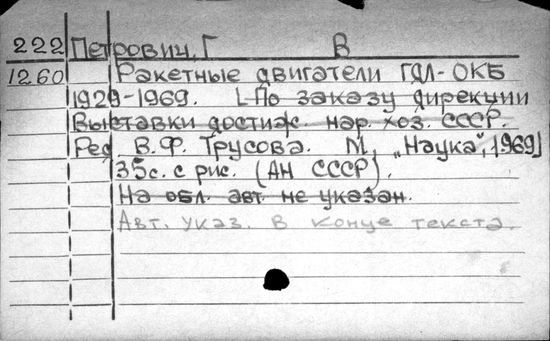 222 Петрович, Г В
1260 Ракетные двигатели ГДЛ-ОКБ
1929-1969. [-По заказу дирекции
Выставки достиж. нар. хоз. СССР.
Ред В.Ф. Трусова. М., „Наука", 1969]
35с. с рис. (АН СССР).
На обл. авт. не указан.
Авт. указ. в конце текста.